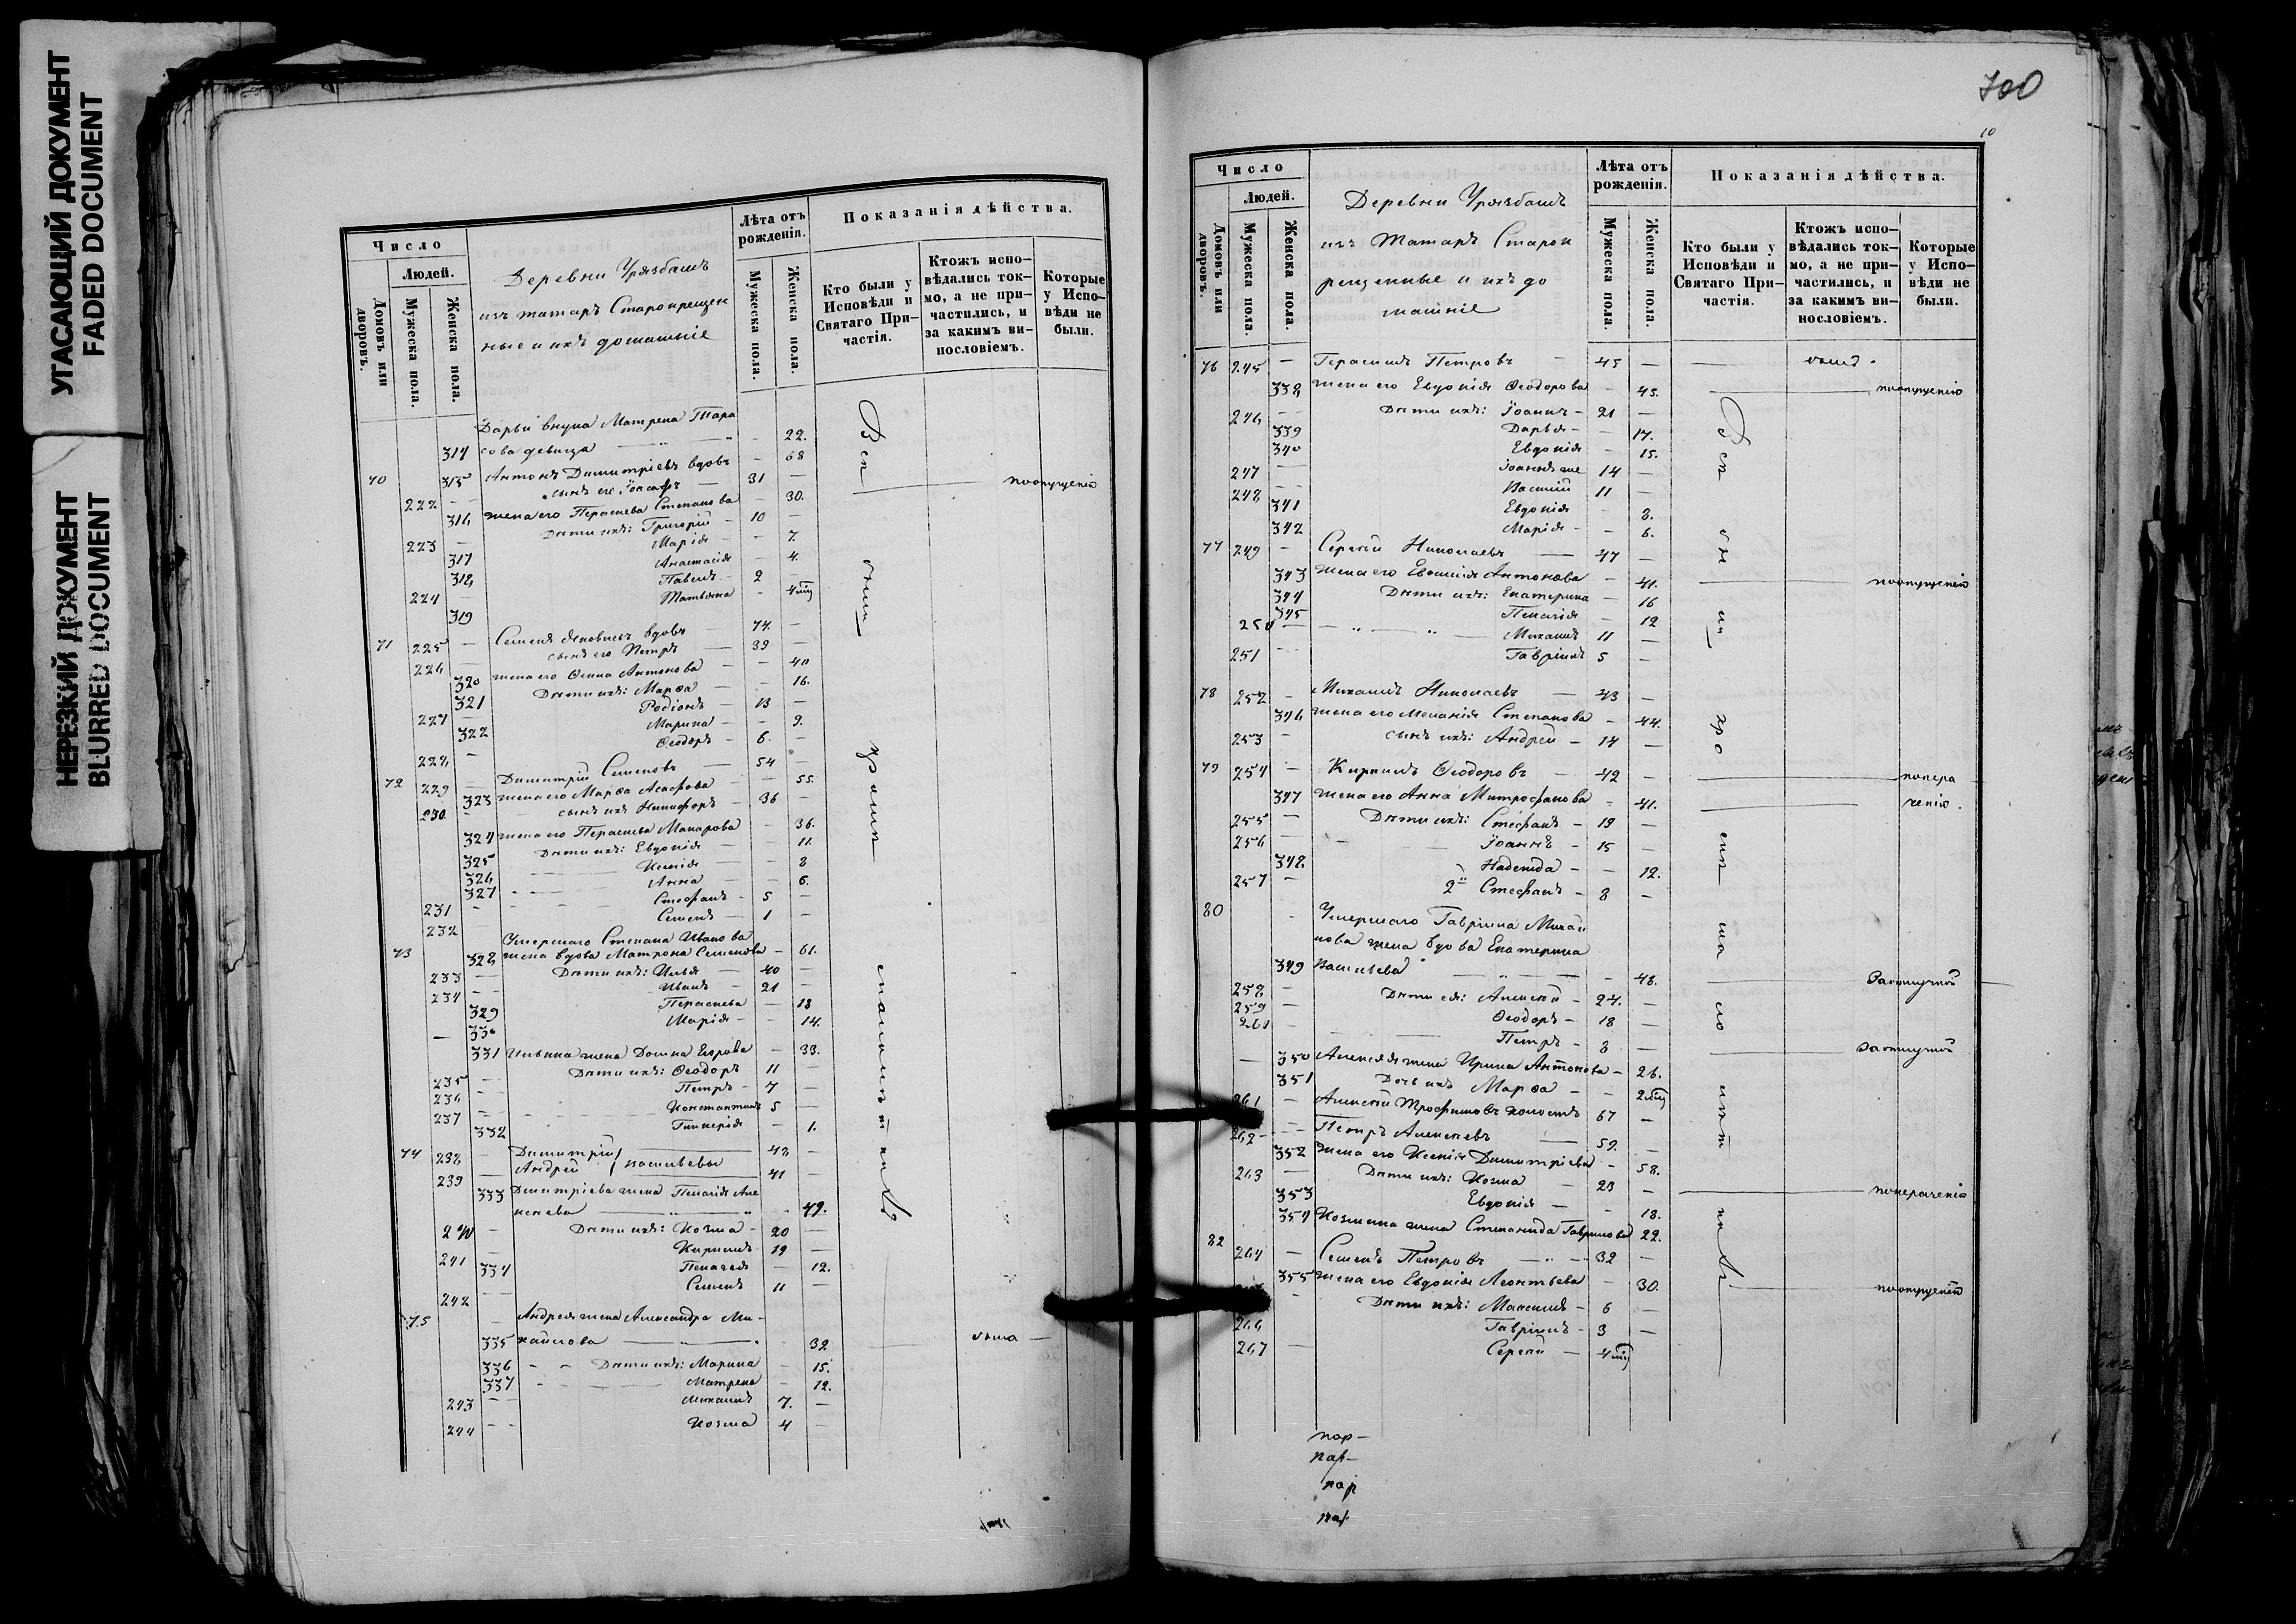 УГАСАЮЩИЙ ДОКУМЕНТ
FADED DOCUMENT
НЕРЕЗКИЙ ДОКУМЕНТ
BLURRED DOCUMENT
Число
Людей.
Домовъ или дворовъ.
Мужеска пола.
Женска пола.
Деревни Урязбашъ
изъ татаръ Старокрещен
ные и ихъ домашніе
Лѣта отъ рожденія.
Мужеска пола.
Женска пола.
Показанія дѣйства.
Кто были у Исповѣди и Святаго При-частія.
Ктожъ испо-вѣдались ток-мо, а не при-частились, и за какимъ ви-нословіемъ.
Которые у Испо-вѣди не были.
Дарьи внука Матрена Тара
314 сова девица - 22.
70 315 Антонъ Димитріевъ вдовъ - 68
222 - сынъ его 31 - поопущенію
316 жена его Параскева Степанова - 30.
223 - Дѣти ихъ: Григорій - 10 -
317 Марія - - 7.
318 Анастасія - 4.
224 - Павелъ - 2 -
319 Татьяна - 4
71 225 - Семенъ вдовъ - 74. -
226 - сынъ его Петръ - 39 -
320 жена его Антонова - - 40
321 Дѣти ихъ: Марѳа - - 16.
227 - Родіонъ - 13 -
322 Марина - - 9.
228 - Ѳеодоръ - 6. -
72 229 - Димитрій Семеновъ - 54 -
323 жена его Марѳа - - 55.
230 - сынъ ихъ Никифоръ - 36
324 жена его Параскева Макарова - 36.
325 Дѣти ихъ: Евдокія - - 11.
326 Ксенія - - 8
327 Анна - - 6.
231 - Стефанъ - 5 -
232 - Семенъ - 1 -
Умершаго Степана Иванова
73 328 жена вдова Матрона Семенова - 61.
233 - Дѣти ихъ: Илья - 40 -
234 - Иванъ - 21 -
329 Параскева - 18
330 Марія - - 14.
331 Ильина жена Домна Егорова - 33.
235 - Дѣти ихъ: Ѳеодоръ 11 -
236 - Петръ - 7 -
237 - Константинъ 5 -
332 Гликерія - 1.
74 238 - Димитрій 42 -
239 - Андрей Васильевы 41 -
333 Дмитріева жена Пелагія Але
ксеева - 42.
240 - Дѣти ихъ: Козма - 20 -
241 - Кириллъ 19 -
334 Пелагея - 12.
242 - Семенъ 11 -
75 - Андрея жена Александра Ми-
335 хайлова - 32 была -
336 - Дѣти ихъ: Марина - 15.
337 - Матрена - 12.
243 - Михаилъ 7. -
244 - Козма 4 -
Всѣ
700
10
Число
Людей.
Домовъ или дворовъ.
Мужеска пола.
Женска пола.
Деревни Урязбашъ
изъ Татаръ Старок
рещенные и ихъ до
машніе
Лѣта отъ рожденія.
Мужеска пола.
Женска пола.
Показанія дѣйства.
Кто были у Исповѣди и Святаго При-частія.
Ктожъ испо-вѣдались ток-мо, а не при-частились, и за какимъ ви-нословіемъ.
Которые у Испо-вѣди не были.
76 245 - Герасимъ Петровъ - 45 -
338 жена его Евдокія Ѳеодорова - 45. поопущенію
246 - Дѣти ихъ: Іоаннъ - 21 -
339 Дарья - - 17.
340 Евдокія - 15.
247 - Іоаннъ 14 -
248 - Василій 11 -
341 Евдокія - 8.
342 Марія - - 6.
77 249 - Сергѣй Николаевъ - 47 -
343 жена его Антонова - 41. поопущенію
344 Дѣти ихъ: Екатерина - 16
345 Пелагія - 12
250 - Михаилъ 11 -
251 - Гавріилъ 5 -
78 252 - Михаилъ Николаевъ - 43 -
346 жена его Меланія Степанова - 44.
253 - сынъ ихъ: Андрей - 14 -
79 254 - Кириллъ Ѳеодоровъ - 42 - понера
347 жена его Анна Митрофанова - 41. ченію.
255 - Дѣти ихъ: Стефанъ - 19 -
256 - Іоаннъ - 15 -
348 Надежда - - 12.
257 - 2й Стефанъ - 8 -
80 - Умершаго Гавріила Михай
лова жена вдова Екатерина
349 Васильева - 48. Заотлучкой
258 - Дѣти ея: Алексѣй - 24. -
259 - Ѳеодоръ - 18 -
260 - Петръ - 8 -
350 Алексѣя жена Ирина Антонова - 26. Заотлучкой
351 Дочь ихъ Марѳа - - 2
261 - Алексѣй Трофимовъ холостъ 67 -
262 - Петръ Алексеевъ - 59. -
352 жена его Ксенія Димитріева - 58.
263 - Дѣти ихъ: Козма - 23 - понераченію
353 Евдокія - - 18.
354 Козмина жена Степанида Гаврилова 22.
82 264 - Семенъ Петровъ - 32 -
355 жена его Евдокія Леонтьева - 30. поопущенію
- Дѣти ихъ: Максимъ - 6 -
266 Гавріилъ - 3 -
267 - Сергѣй - 4